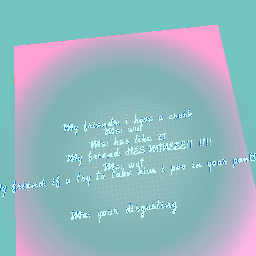 My friend: i have a crush
Me: wut
Me: hes like 27
My friend: HES MINEEEE !!!!
Me: wut
My friend: if u try to take him i poo in your pants
Me: your disgusting